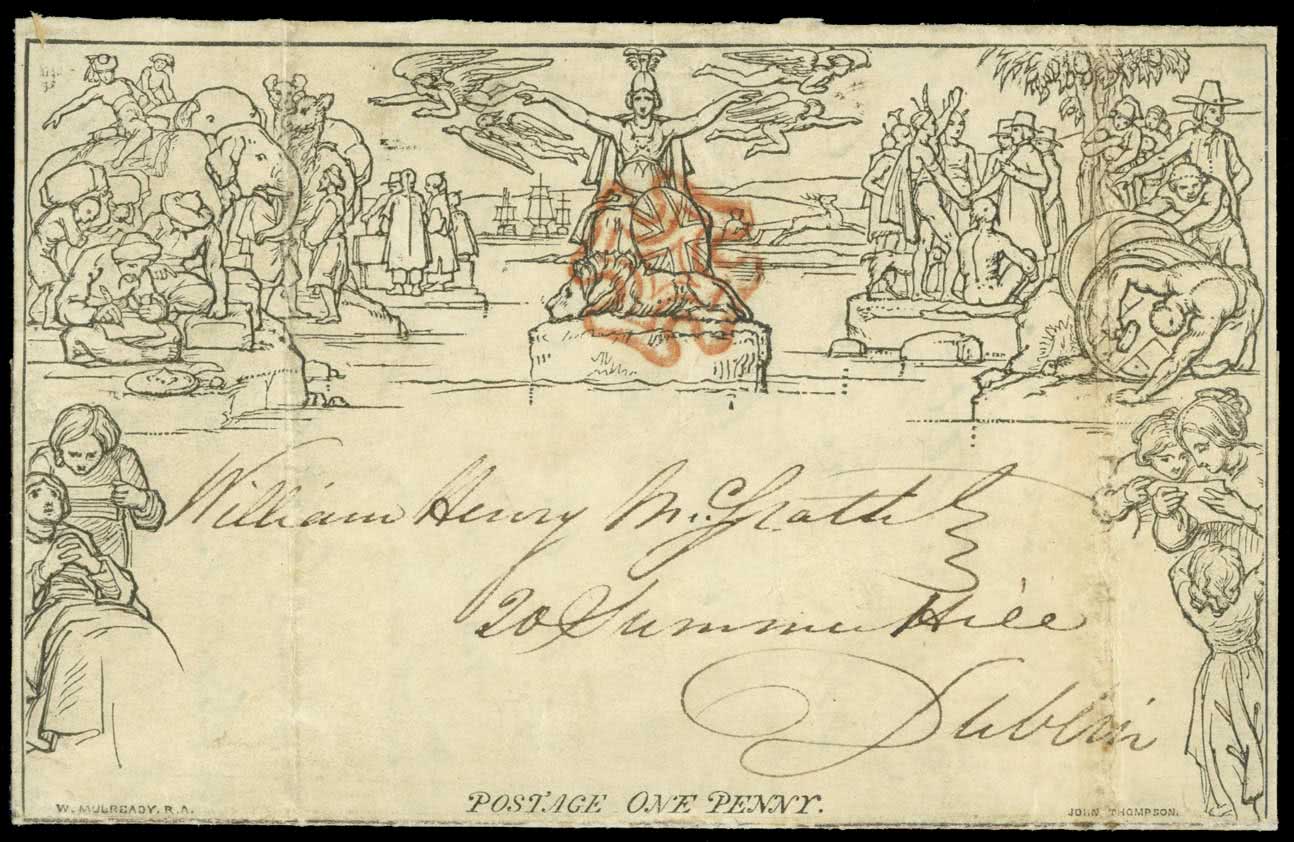 William Henry McGrath
20 Summer Hill
Dublin
W. MULREADY, R.A.
POSTAGE ONE PENNY.
JOHN THOMPSON.